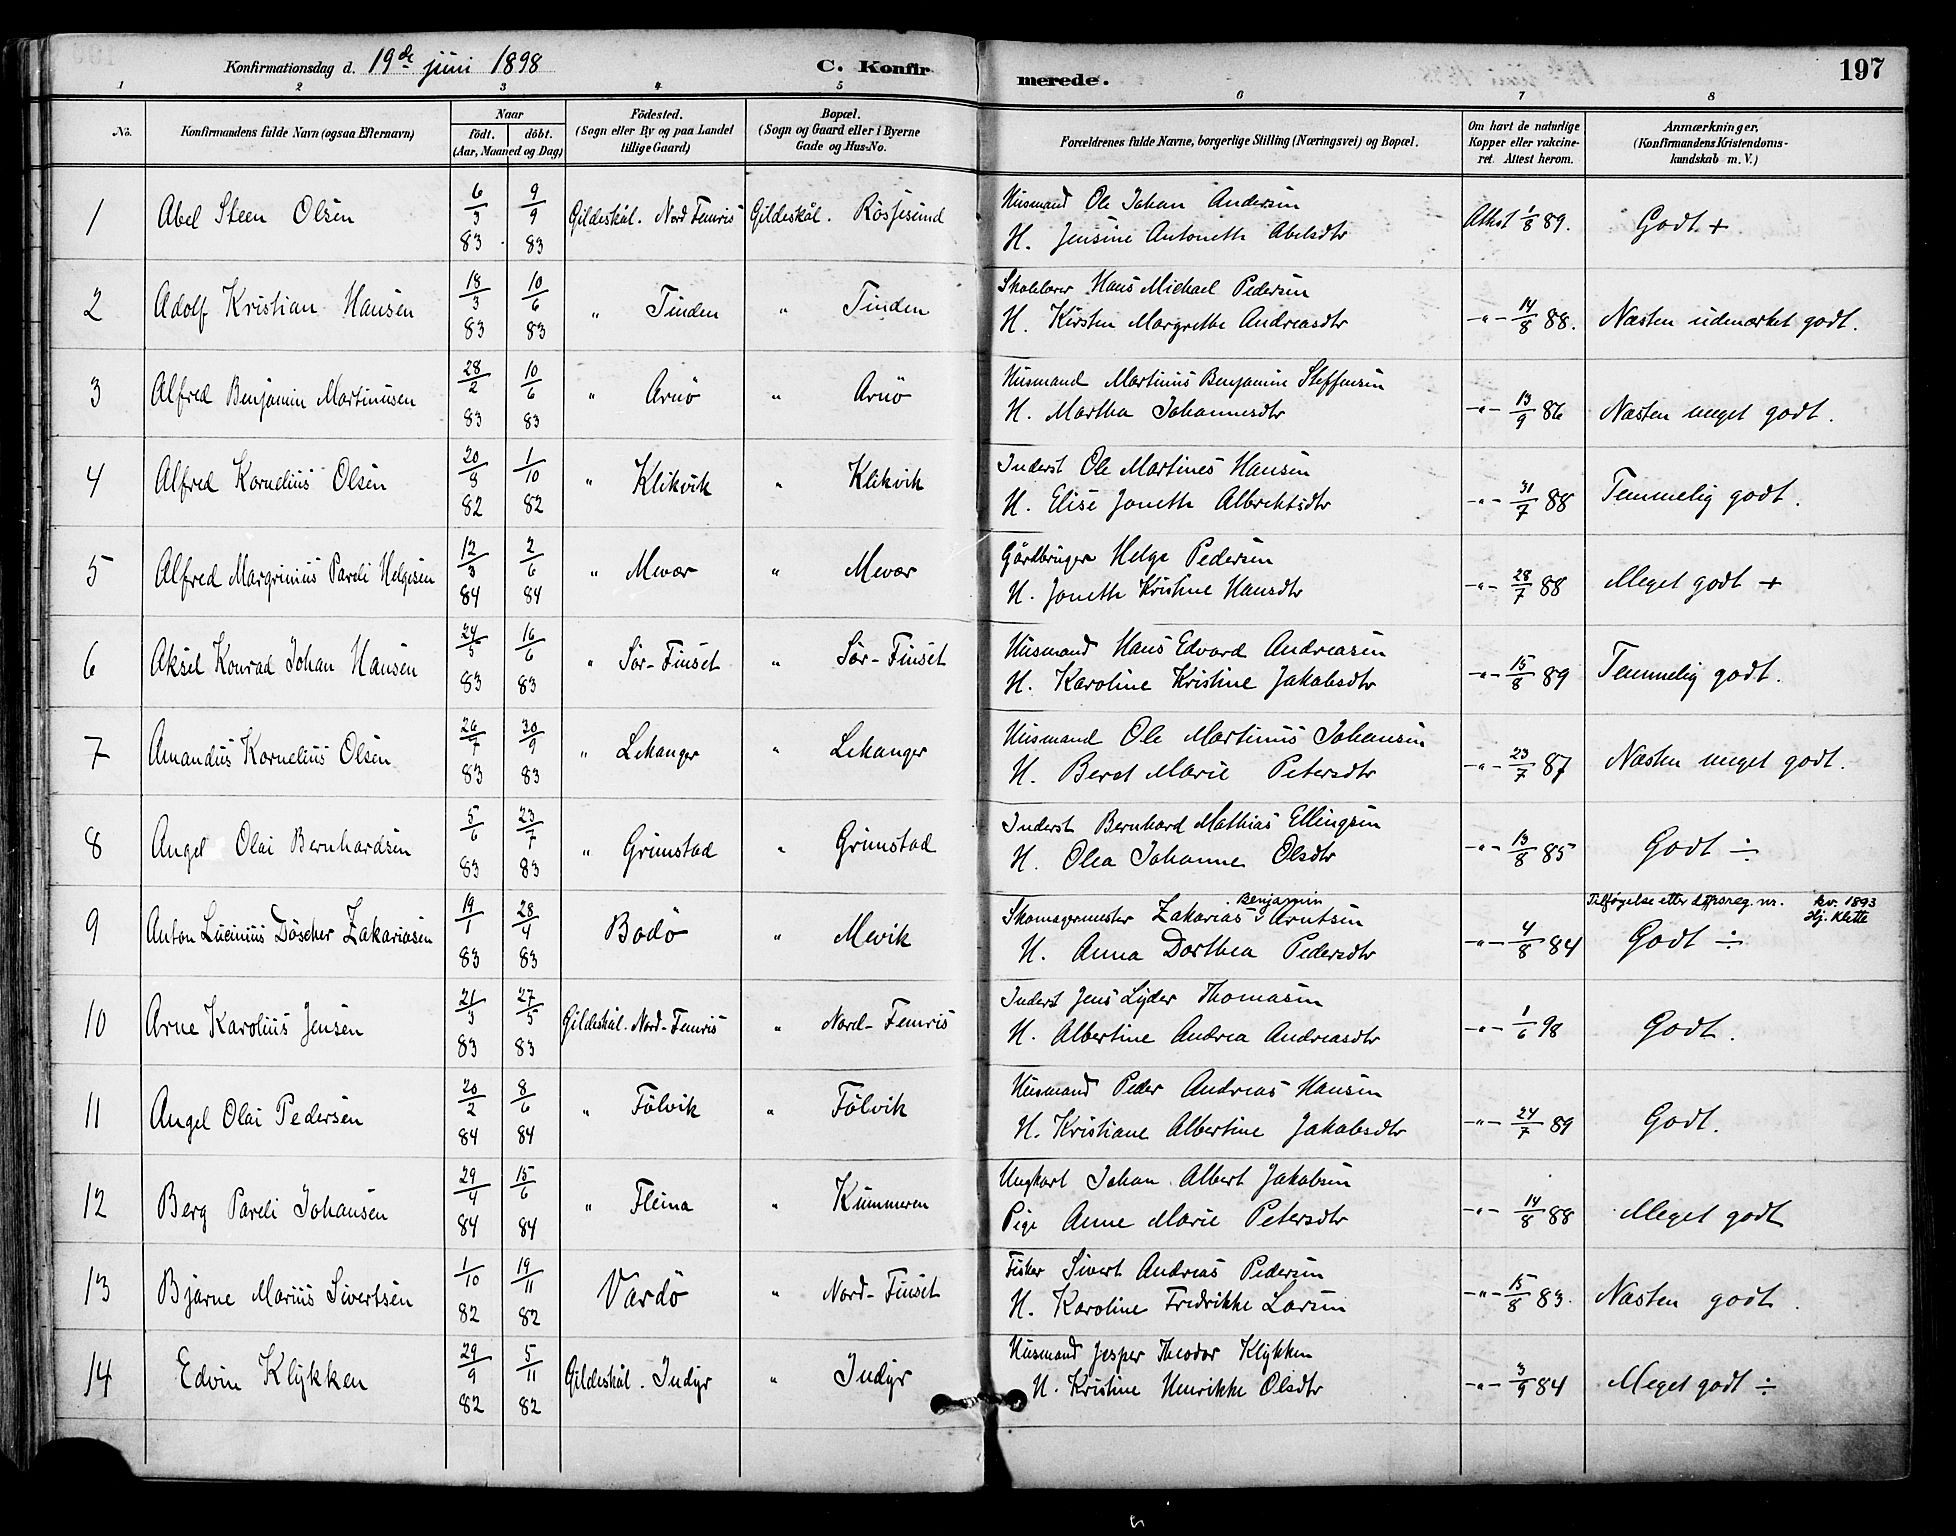 Konfirmationsdag d. 19de juni 1898
C. Konfirmerede.
197
1 2 3 4 5 6 7 8
No.
Konfirmandens fulde Navn (ogsaa Efternavn)
Naar
födt. döbt.
(Aar, Maaned og Dag)
Födested.
(Sogn eller By og paa Landet
tillige Gaard)
Bopæl.
(Sogn og Gaard eller i Byerne
Gade og Hus-No.
Forældrenes fulde Navne, borgerlige Stilling (Næringsvei) og Bopæl.
Om havt de naturlige
Kopper eller vakcine-
ret. Attest herom.
Anmærkninger.
(Konfirmandens Kristendoms-
kundskab m. V.)
1 Abel Steen Olsen 6/3 83 9/9 83 Gildeskål. Nord Femris Gildeskål. Rösjesund
Husmand Ole Johan Andersen
H. Jensine Antoneth Abelsdtr
Attest 1/8 89. Godt +
2 Adolf Kristian Hansen 18/3 83 10/6 83 " Tinden " Tinden
Skolelærer Hans Michael Pedersen
H. Kirsten Margrethe Andreasdtr
-"- 14/8 88. Næsten udmærket godt.
3 Alfred Benjamin Martinusen 28/2 83 10/6 83 " Arnö " Arnö
Husmand Martinus Benjamin Steffensen
H. Martha Johannesdtr
-"- 13/9 86 Næsten meget godt.
4 Alfred Kornelius Olsen 20/8 82 1/10 82 " Klikvik " Klikvik
Inderst Ole Martines Hansen
H. Elise Joneth Albrektsdtr
-"- 31/7 88 Temmelig godt.
5 Alfred Margrinius Pareli Helgesen 12/3 84 2/6 84 " Mevær " Mevær
Gårdbruger Helge Pedersen
H. Joneth Kristine Hansdtr
-"- 28/7 88 Meget godt +
6 Aksel Konrad Johan Hansen 24/5 83 16/6 83 " Sör-Finset " Sör-Finset
Husmand Hans Edvard Andreasen
H. Karoline Kristine Jakobsdtr
-"- 15/8 89 Temmelig godt.
7 Amandus Kornelius Olsen 26/7 83 30/9 83 " Lekanger " Lekanger
Husmand Ole Martinus Johansen
H. Beret Marie Petersdtr
-"- 23/7 87 Næsten meget godt.
8 Angel Olai Bernhardsen 5/6 83 23/7 83 " Grimstad " Grimstad
Inderst Bernhard Mathias Ellingsen
H. Olea Johanne Olsdtr
-"- 13/8 85 Godt ÷
9 Anton Lucinius Döscher Zakariasen 19/1 83 28/4 83 Bodö " Mevik
Skomagermester Zakarias Benjamin Arntsen
H. Anna Dorthea Pedersdtr
-"- 4/8 84 Godt ÷
Tilföyelse etter dåpsreg. nr. kv. 1893
Hj. Klette
10 Arne Karolius Jensen 21/3 83 27/5 83 Gildeskål. Nord-Femris " Nord-Femris
Inderst Jens Lyder Thomasen
H. Albertine Andrea Andreasdtr
-"- 1/6 98 Godt.
11 Angel Olai Pedersen 20/2 84 8/6 84 " Fölvik " Fölvik
Husmand Peder Andreas Hansen
H. Kristiane Albertine Jakobsdtr
-"- 24/7 89 Godt.
12 Berg Pareli Johansen 29/4 84 15/6 84 " Fleina " Kummeren
Ungkarl Johan Albert Jakobsen
Pige Anne Marie Petersdtr
-"- 14/8 88 Meget godt
13 Bjarne Marius Sivertsen 1/10 82 19/11 82 Vardö " Nord-Finset
Fisker Sivert Andreas Pedersen
H. Karoline Fredrikke Larsen
-"- 15/8 83. Næsten godt.
14 Edvin Klykken 29/9 82 5/11 82 Gildeskål. Indyr " Indyr
Husmand Jesper Theodor Klykken
H. Kristine Henrikke Olsdtr
-"- 3/9 84 Meget godt ÷